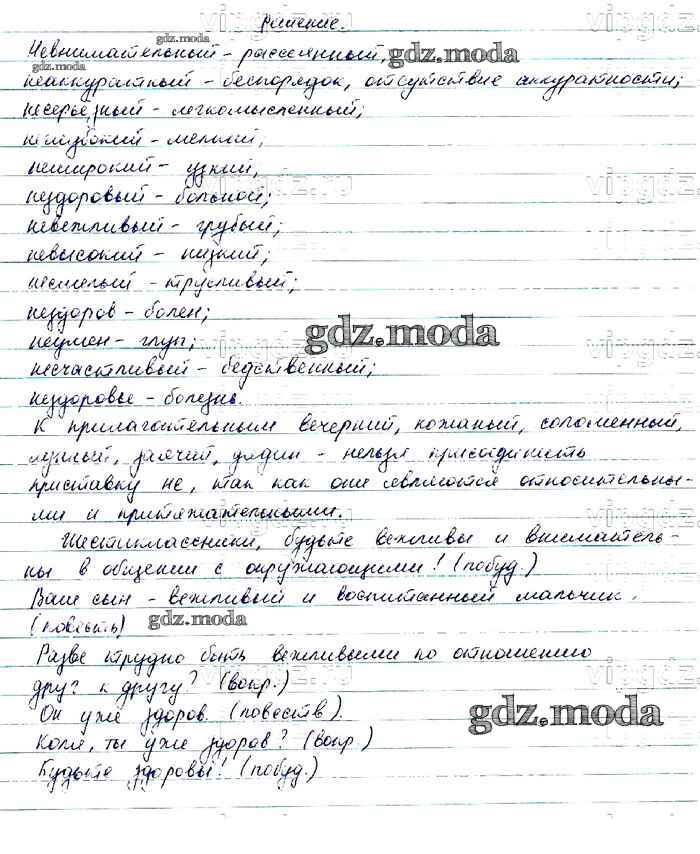 Решение.
Невнимательный - рассеянный, gdz.moda
gdz.moda
неаккуратный - беспорядок, отсутствие аккуратности;
несерьезный - легкомысленный;
неглубокий - мелкий;
неширокий - узкий,
нездоровый - больной;
невежливый - грубый;
невысокий - низкий;
несмелый - трусливый;
нездоров - болен;
gdz.moda
неумен - глуп;
несчастливый - бедственный;
нездоровье - болезнь.
К прилагательным вечерний, кожаный, соломенный,
заячий, - нельзя присоединить
приставку не, так как они являются относительны-
ми и притяжательными.
Шестиклассники, будьте вежливы и вниматель-
ны в общении с окружающими! (побуд.)
Ваш сын - вежливый и воспитанный мальчик.
(повеств) gdz.moda
Разве трудно быть вежливыми по отношению
друг к другу? (вопр.)
Он уже здоров. (повеств).
gdz.moda
Коля, ты уже здоров? (вопр.)
Будьте здоровы! (побуд.)